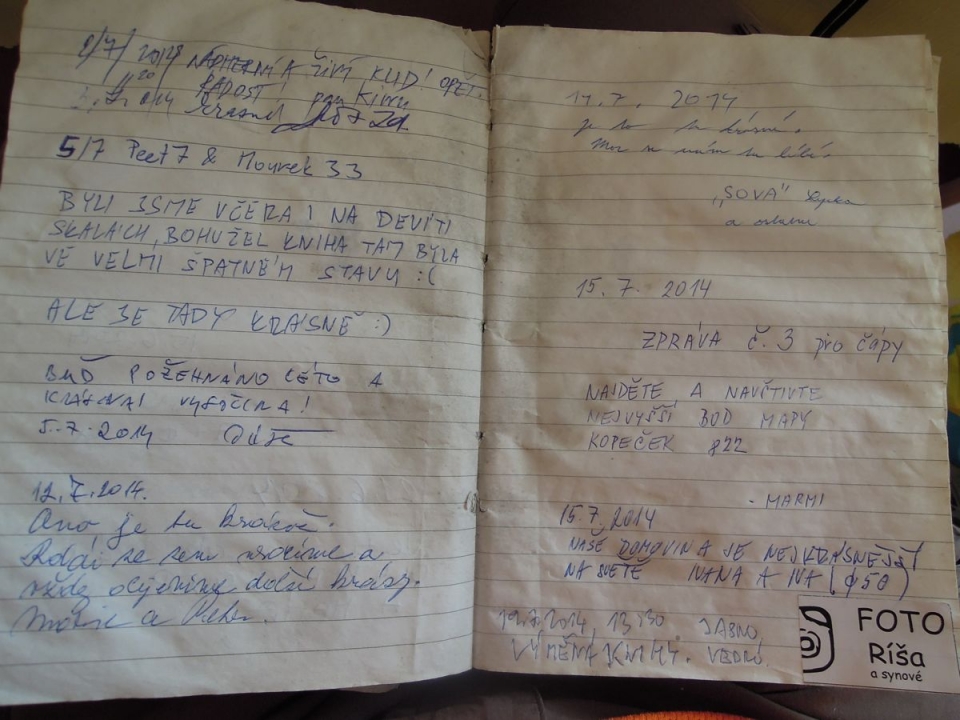 NÁDHERNÝ A ŽIVÝ KLID! OPĚT
RADOST!
5/7 Peet7 & Mourek 33
BYLI JSME VČERA I NA DEVÍTI
SKALÁCH, BOHUŽEL KNIHA TAM BYLA
VE VELMI ŠPATNÉM STAVU :(
ALE JE TADY KRÁSNĚ :)
BUĎ POŽEHNÁNO LÉTO A
VYSOČINA!
5.7.2014
12.7.2014.
Ano je tu krásně.
Rádi se sem vracíme a
další krásy.
a
14.7. 2014
je to tu krásné.
Moc se nám tu líbí.
„SOVA"
a ostatní
15.7. 2014
ZPRÁVA č.3 pro čápy
NAJDĚTE A NAVŠTIVTE
NEJVYŠŠÍ BOD MAPY
KOPEČEK 822
- MARMI
15.7.2014
NAŠE DOMOVINA JE NEJKRÁSNĚJŠÍ
NA SVĚTĚ IVANA A IVA
19.7.2014, 13:30 JASNO,
VÝMĚNA KNIHY. VEDRO.
FOTO
Ríša
a synové